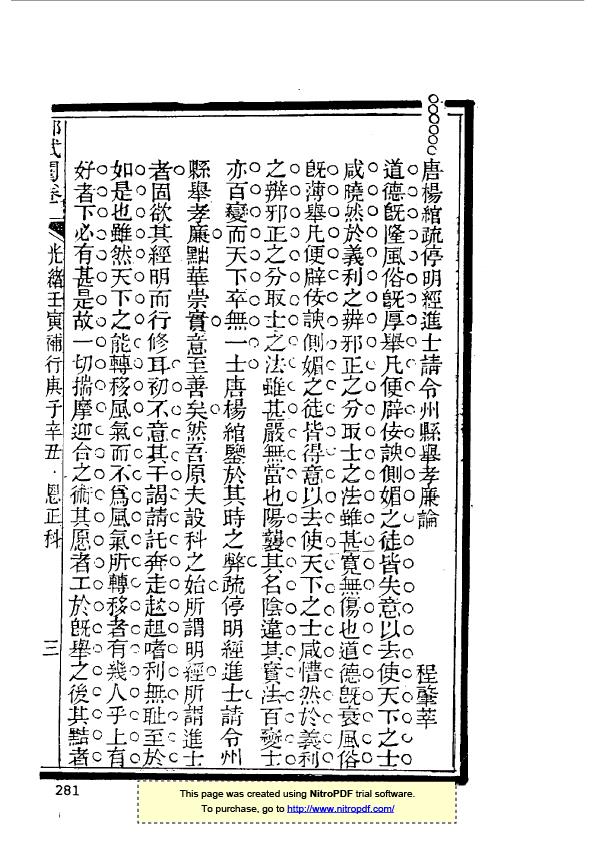 唐楊綰疏停明經進士請令州縣舉孝廉論 程肇莘
道德旣隆風俗旣厚舉凡便辟佞諛側媚之徒皆失意以去使天下之士
咸曉然於義利之辨邪正之分取士之法雖甚寬無傷也道德旣衰風俗
旣薄舉凡便辟佞諛側媚之徒皆得意以去使天下之士咸懵然於義利
之辨邪正之分取士之法雖甚嚴無當也陽襲其名陰違其實法百變士
亦百變而天下卒無一士唐楊綰鑒於其時之弊疏停明經進士請令州
縣舉孝廉黜華崇實意至善矣然吾原夫設科之始所謂明經所謂進士
者固欲其經明而行修耳初不意其干謁請託奔走趑趄嗜利無耻至於
如是也雖然天下之能轉移風氣而不爲風氣所轉移者有幾人乎上有
好者下必有甚是故一切揣摩迎合之術其愿者工於旣舉之後其黠者
試 卷一 光緒壬寅補行庚子辛丑恩正科 三
281
This page was created using NitroPDF trial software.
To purchase, go to http://www.nitropdf.com/